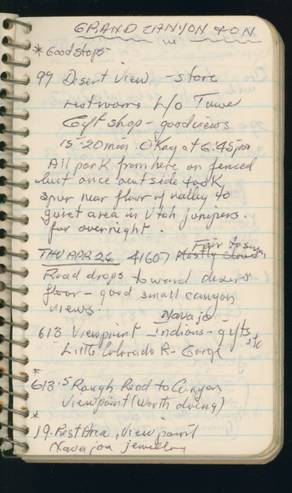 GRAND CANYON + ON
* Good stops -
99 Desert View - store
restrooms H/O Tower
Gift shop - good views
15-20 min. Okay at 6:45 pm
All park from here on fenced
but once outside took
spur near floor of valley to
quiet area in Utah junipers.
for overnight.
THU APR 26 41607 Mostly cloud
Fair to sunny
Road drops toward desert
floor - good small canyon
views
Navajo
613 Viewpoint - indians - gifts etc
Little Colorado R - Gorge
*
613.5 Rough Road to Canyon
viewpoint (worth driving)
*
19. Rest Area, viewpoint
Navajo jewellery